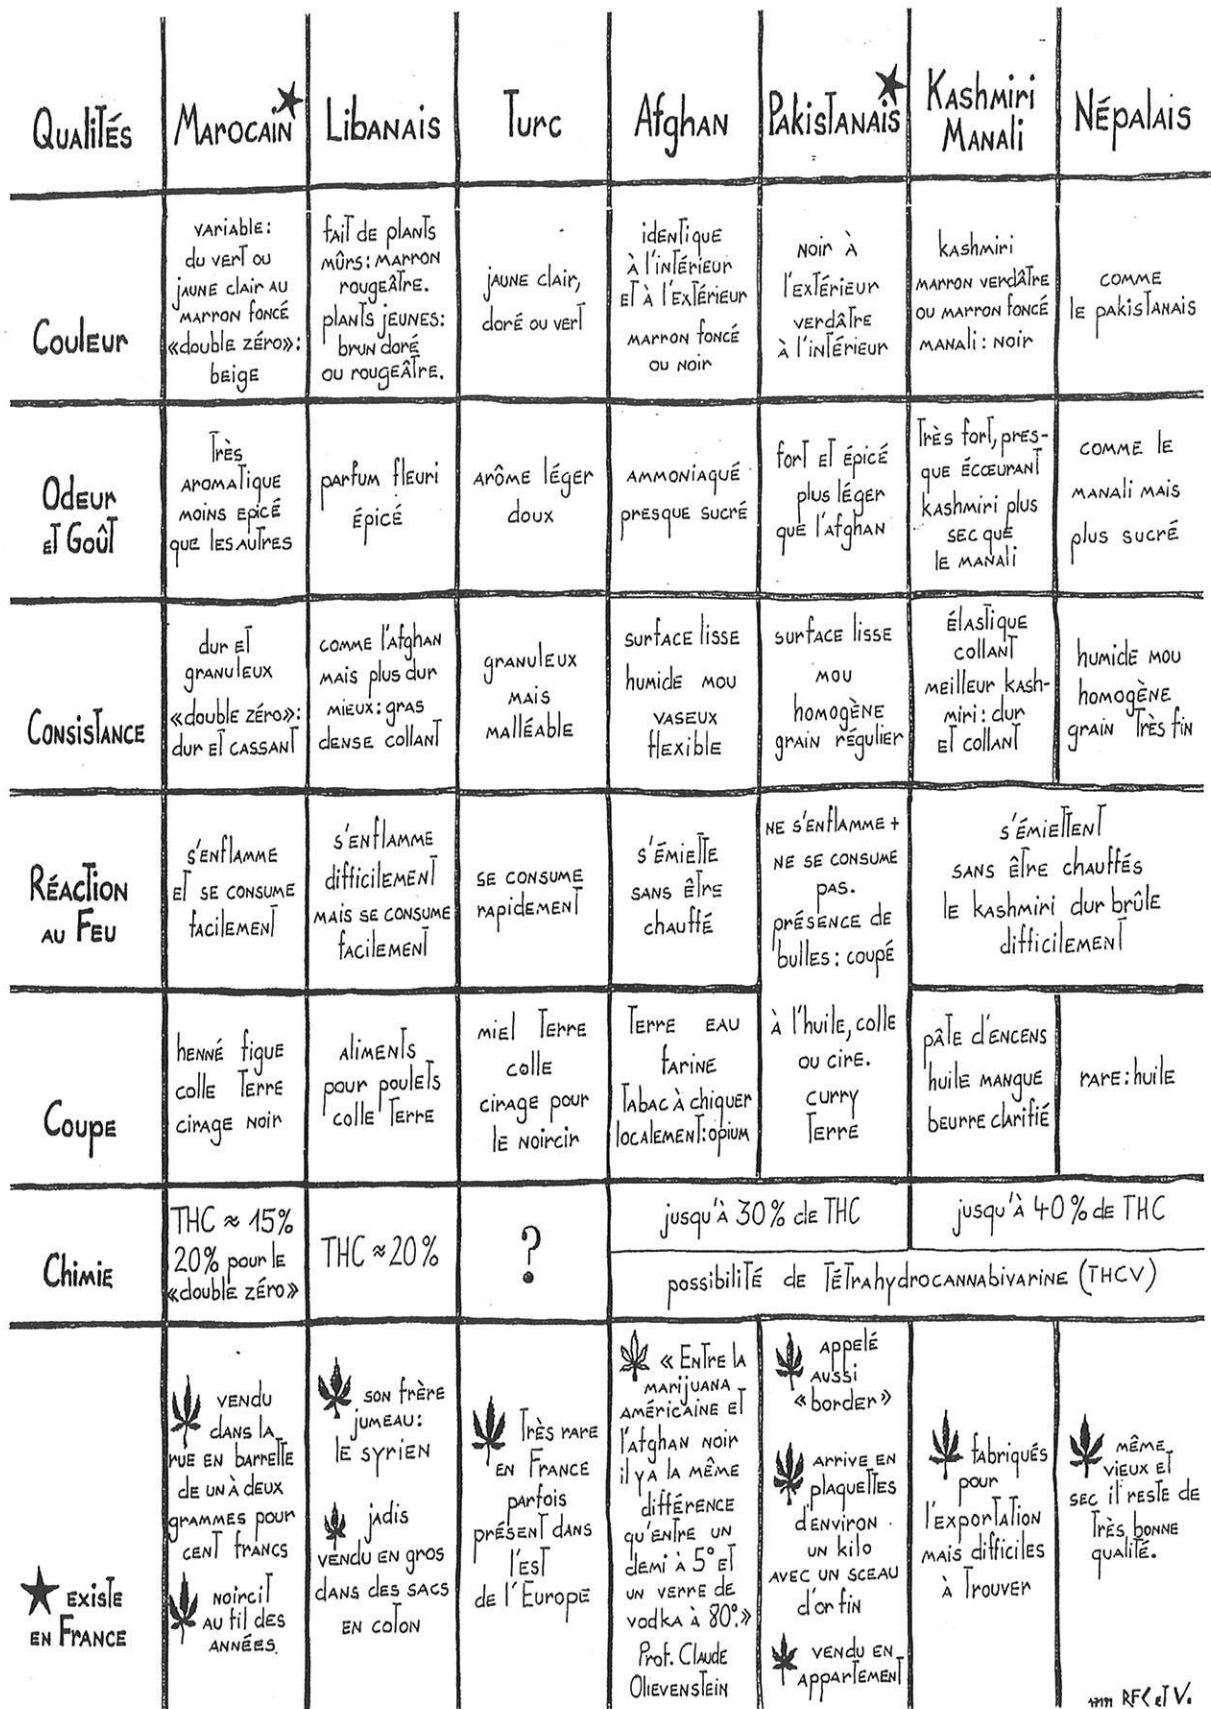 Qualités
Marocain
Libanais
Turc
Afghan
Pakistanais
Kashmiri
Manali
Népalais
Couleur
variable:
du vert ou
jaune clair au
marron foncé
«double zéro»:
beige
fait de plants
mûrs: marron
rougeâtre.
plants jeunes:
brun doré
ou rougeâtre.
jaune clair,
doré ou vert
identique
à l'intérieur
et à l'extérieur
marron foncé
ou noir
noir à
l'extérieur
verdâtre
à l'intérieur
kashmiri
marron verdâtre
ou marron foncé
manali: noir
comme
le pakistanais
Odeur
et Goût
très
aromatique
moins epicé
que les autres
parfum fleuri
épicé
arôme léger
doux
ammoniaqué
presque sucré
fort et épicé
plus léger
que l'afghan
très fort, pres-
que écœurant
kashmiri plus
sec que
le manali
comme le
manali mais
plus sucré
Consistance
dur et
granuleux
«double zéro»:
dur et cassant
comme l'afghan
mais plus dur
mieux: gras
dense collant
granuleux
mais
malléable
surface lisse
humide mou
vaseux
flexible
surface lisse
mou
homogène
grain régulier
élastique
collant
meilleur kash-
miri: dur
et collant
humide mou
homogène
grain très fin
Réaction
au Feu
s'enflamme
et se consume
facilement
s'enflamme
difficilement
mais se consume
facilement
se consume
rapidement
s'émiette
sans être
chauffé
ne s'enflamme +
ne se consume
pas.
présence de
bulles: coupé
à l'huile, colle
ou cire.
curry
terre
s'émiettent
sans être chauffés
le kashmiri dur brûle
difficilement
Coupe
henné figue
colle terre
cirage noir
aliments
pour poulets
colle terre
miel terre
colle
cirage pour
le noircir
terre eau
farine
tabac à chiquer
localement: opium
pâte d'encens
huile mangue
beurre clarifié
rare: huile
Chimie
THC ≈ 15%
20% pour le
«double zéro»
THC ≈ 20%
?
jusqu'à 30% de THC
jusqu'à 40% de THC
possibilité de tétrahydrocannabivarine (THCV)
existe
en France
vendu
dans la
rue en barrette
de un à deux
grammes pour
cent francs
noircit
au fil des
années.
son frère
jumeau:
le syrien
jadis
vendu en gros
dans des sacs
en coton
très rare
en France
parfois
présent dans
l'est
de l'Europe
« Entre la
marijuana
américaine et
l'afghan noir
il y a la même
différence
qu'entre un
demi à 5° et
un verre de
vodka à 80°.»
Prof. Claude
Olievenstein
appelé
aussi
«border»
arrive en
plaquettes
d'environ
un kilo
avec un sceau
d'or fin
vendu en
appartement
fabriqués
pour
l'exportation
mais difficiles
à trouver
même
vieux et
sec il reste de
très bonne
qualité.
RFC et V.